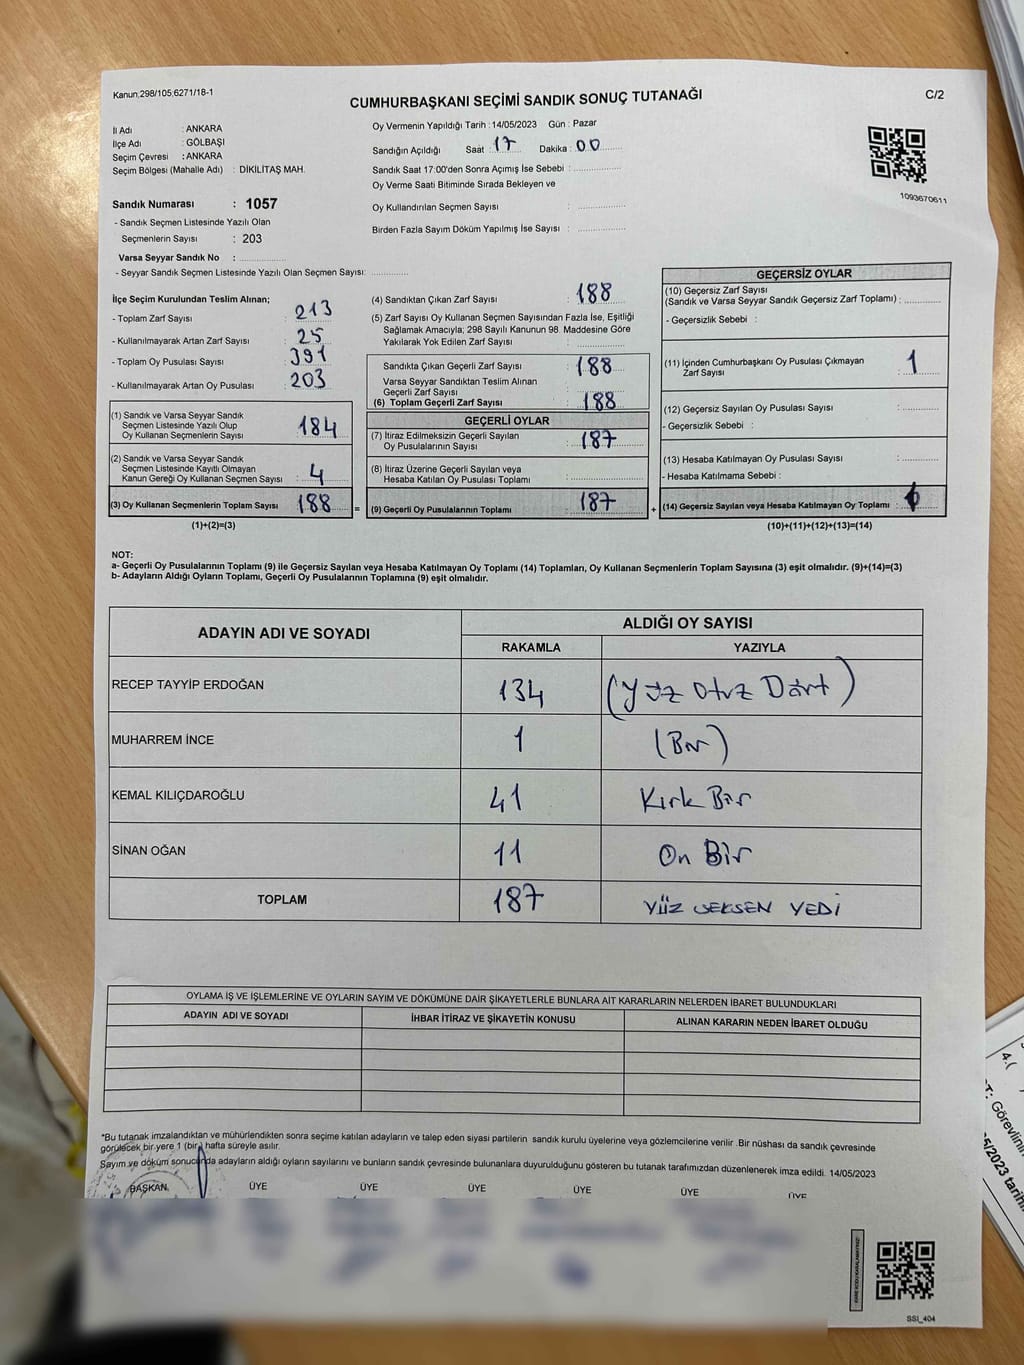 Kanun.298/105,6271/18-1
CUMHURBAŞKANI SEÇİMİ SANDIK SONUÇ TUTANAĞI
C/2
İl Adı : ANKARA
İlçe Adı : GÖLBAŞI
Seçim Çevresi : ANKARA
Seçim Bölgesi (Mahalle Adı) : DİKİLİTAŞ MAH.
Oy Vermenin Yapıldığı Tarih : 14/05/2023 Gün : Pazar
Sandığın Açıldığı Saat : 17 Dakika : 00
Sandık Saat 17:00'den Sonra Açımış İse Sebebi :
Oy Verme Saati Bitiminde Sırada Bekleyen ve
Oy Kullandırılan Seçmen Sayısı :
Birden Fazla Sayım Döküm Yapılmış İse Sayısı :
1093670611
Sandık Numarası : 1057
- Sandık Seçmen Listesinde Yazılı Olan
Seçmenlerin Sayısı : 203
Varsa Seyyar Sandık No :
- Seyyar Sandık Seçmen Listesinde Yazılı Olan Seçmen Sayısı:
İlçe Seçim Kurulundan Teslim Alınan;
- Toplam Zarf Sayısı : 213
- Kullanılmayarak Artan Zarf Sayısı : 25
- Toplam Oy Pusulası Sayısı : 391
- Kullanılmayarak Artan Oy Pusulası : 203
(1) Sandık ve Varsa Seyyar Sandık
Seçmen Listesinde Yazılı Olup
Oy Kullanan Seçmenlerin Sayısı : 184
(2) Sandık ve Varsa Seyyar Sandık
Seçmen Listesinde Kayıtlı Olmayan
Kanun Gereği Oy Kullanan Seçmen Sayısı : 4
(3) Oy Kullanan Seçmenlerin Toplam Sayısı : 188
(1)+(2)=(3)
(4) Sandıktan Çıkan Zarf Sayısı : 188
(5) Zarf Sayısı Oy Kullanan Seçmen Sayısından Fazla İse, Eşitliği
Sağlamak Amacıyla; 298 Sayılı Kanunun 98. Maddesine Göre
Yakılarak Yok Edilen Zarf Sayısı :
Sandıkta Çıkan Geçerli Zarf Sayısı : 188
Varsa Seyyar Sandıktan Teslim Alınan
Geçerli Zarf Sayısı :
(6) Toplam Geçerli Zarf Sayısı : 188
GEÇERLİ OYLAR
(7) İtiraz Edilmeksizin Geçerli Sayılan
Oy Pusulalarının Sayısı : 187
(8) İtiraz Üzerine Geçerli Sayılan veya
Hesaba Katılan Oy Pusulası Toplamı :
= (9) Geçerli Oy Pusulalarının Toplamı : 187 +
GEÇERSİZ OYLAR
(10) Geçersiz Zarf Sayısı
(Sandık ve Varsa Seyyar Sandık Geçersiz Zarf Toplamı) :
- Geçersizlik Sebebi :
(11) İçinden Cumhurbaşkanı Oy Pusulası Çıkmayan
Zarf Sayısı : 1
(12) Geçersiz Sayılan Oy Pusulası Sayısı :
- Geçersizlik Sebebi :
(13) Hesaba Katılmayan Oy Pusulası Sayısı :
- Hesaba Katılmama Sebebi :
(14) Geçersiz Sayılan veya Hesaba Katılmayan Oy Toplamı :
(10)+(11)+(12)+(13)=(14)
NOT:
a- Geçerli Oy Pusulalarının Toplamı (9) ile Geçersiz Sayılan veya Hesaba Katılmayan Oy Toplamı (14) Toplamları, Oy Kullanan Seçmenlerin Toplam Sayısına (3) eşit olmalıdır. (9)+(14)=(3)
b- Adayların Aldığı Oyların Toplamı, Geçerli Oy Pusulalarının Toplamına (9) eşit olmalıdır.
ADAYIN ADI VE SOYADI
ALDIĞI OY SAYISI
RAKAMLA YAZIYLA
RECEP TAYYİP ERDOĞAN 134 (Yüz Otuz Dört)
MUHARREM İNCE 1 (Bir)
KEMAL KILIÇDAROĞLU 41 Kırk Bir
SİNAN OĞAN 11 On Bir
TOPLAM 187 YÜZ SEKSEN YEDİ
OYLAMA İŞ VE İŞLEMLERİNE VE OYLARIN SAYIM VE DÖKÜMÜNE DAİR ŞİKAYETLERLE BUNLARA AİT KARARLARIN NELERDEN İBARET BULUNDUKLARI
ADAYIN ADI VE SOYADI İHBAR İTİRAZ VE ŞİKAYETİN KONUSU ALINAN KARARIN NEDEN İBARET OLDUĞU
*Bu tutanak imzalandıktan ve mühürlendikten sonra seçime katılan adayların ve talep eden siyasi partilerin sandık kurulu üyelerine veya gözlemcilerine verilir .Bir nüshası da sandık çevresinde
görülecek bir yere 1 (bir) hafta süreyle asılır.
Sayım ve döküm sonucunda adayların aldığı oyların sayılarını ve bunların sandık çevresinde bulunanlara duyurulduğunu gösteren bu tutanak tarafımızdan düzenlenerek imza edildi. 14/05/2023
BAŞKAN ÜYE ÜYE ÜYE ÜYE ÜYE ÜYE
SSİ_404
4.(
Görevlinin
5/2023 tarihi